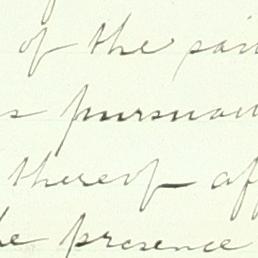 of the said
s pursuan
thereof af
he presence